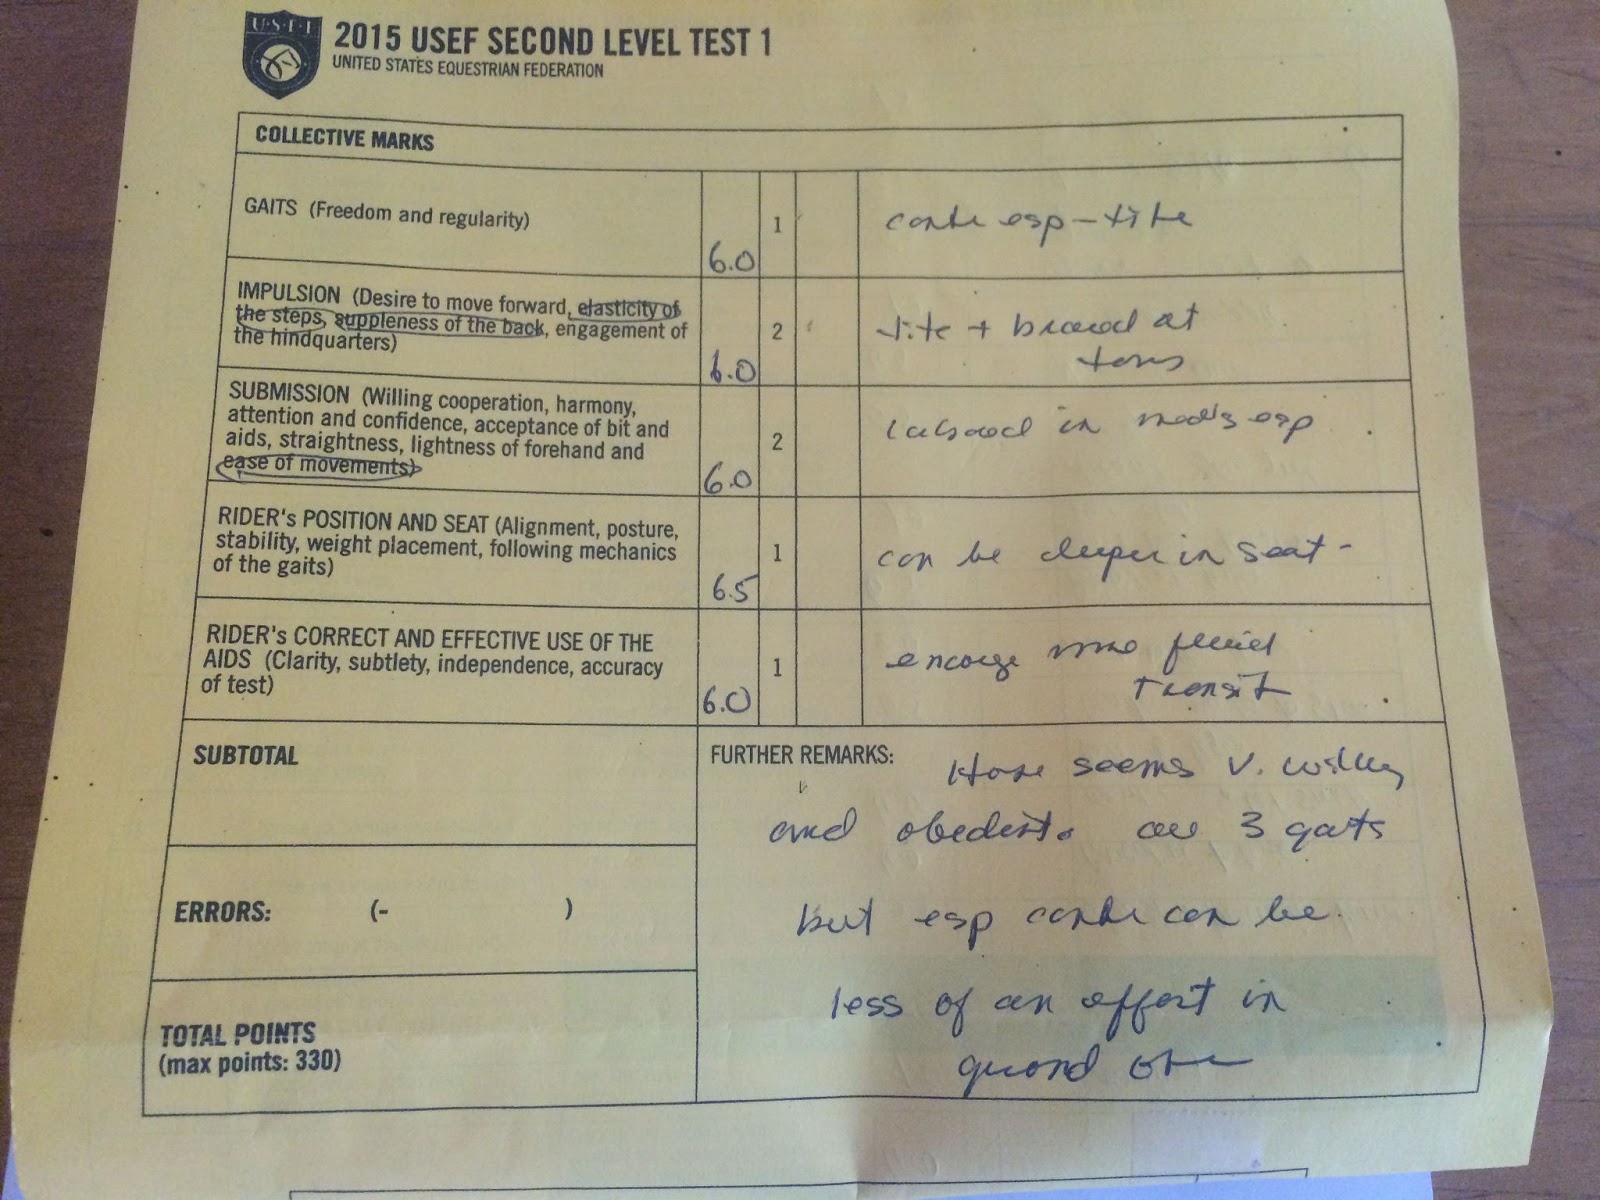 U·S·E·F
2015 USEF SECOND LEVEL TEST 1
UNITED STATES EQUESTRIAN FEDERATION
COLLECTIVE MARKS
GAITS (Freedom and regularity)
6.0
1
esp - tite
IMPULSION (Desire to move forward, elasticity of
the steps, suppleness of the back, engagement of
the hindquarters)
6.0
2
tite + at
SUBMISSION (Willing cooperation, harmony,
attention and confidence, acceptance of bit and
aids, straightness, lightness of forehand and
ease of movements)
6.0
2
in med's esp
RIDER's POSITION AND SEAT (Alignment, posture,
stability, weight placement, following mechanics
of the gaits)
6.5
1
can be deeper in seat -
RIDER's CORRECT AND EFFECTIVE USE OF THE
AIDS (Clarity, subtlety, independence, accuracy
of test)
6.0
1
fluid
transit
SUBTOTAL
ERRORS: (- )
TOTAL POINTS
(max points: 330)
FURTHER REMARKS:
Horse seems v. willing
and obedient. 3 gaits
but esp can be
less of an effort in